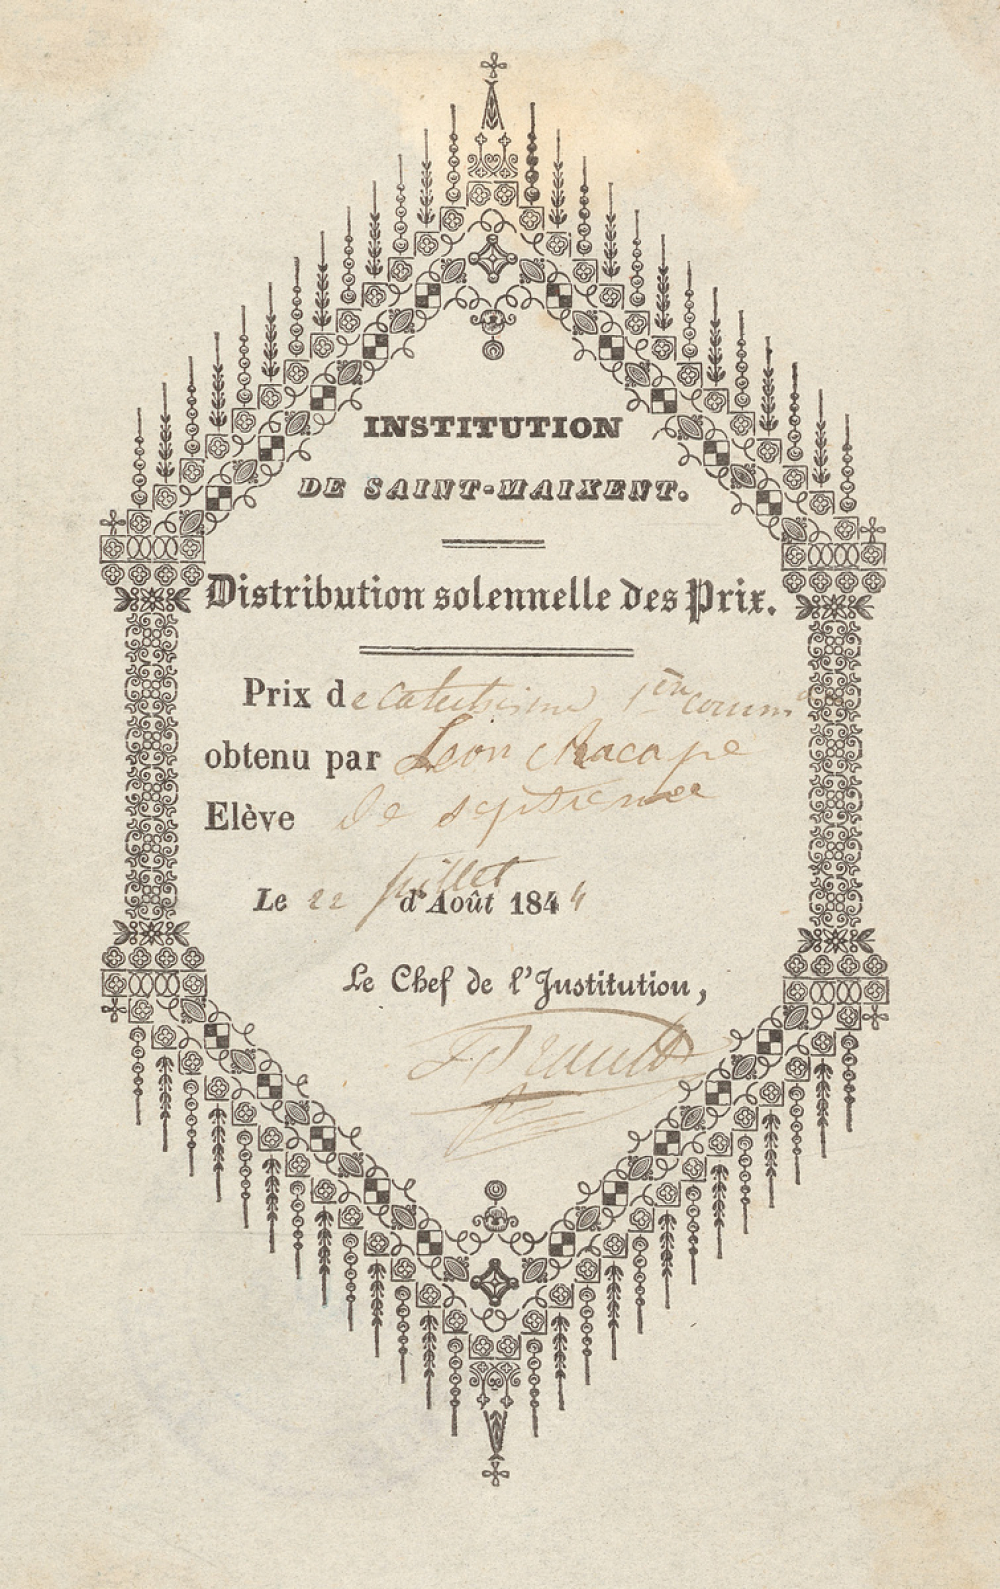 INSTITUTION
DE SAINT-MAIXENT.
Distribution solennelle des Prix.
Prix de catechisme 1ère comm
obtenu par Leon
Elève de septieme
Le 22 Juillet d'Août 1844
Le Chef de l'Institution,